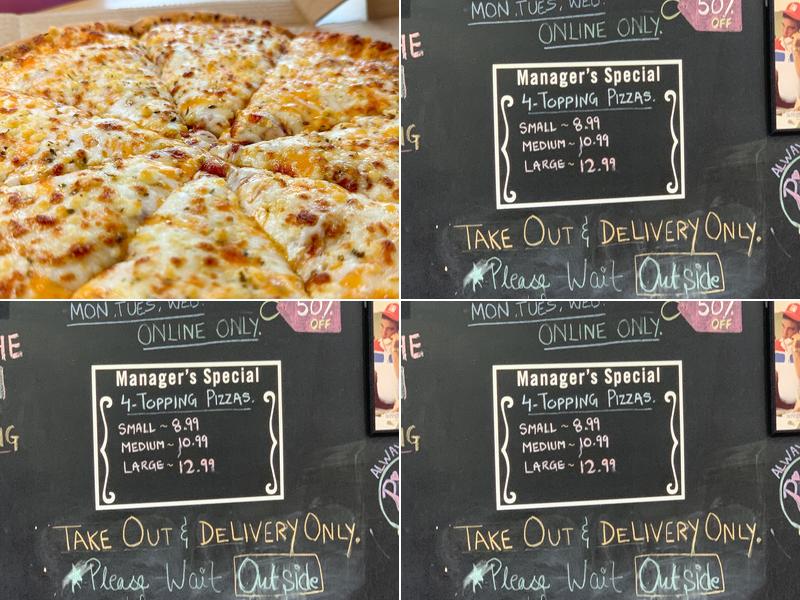 MON.TUES, WED.
50%
OFF
ONLINE ONLY.
HE
Manager's Special
4-TOPPING PIZZAS.
SMALL ~ 8.99
MEDIUM ~ 10.99
LARGE ~ 12.99
G
ALWAY
TAKE OUT & DELIVERY ONLY.
*Please Wait Outside
MON.TUES, WED.
50%
OFF
ONLINE ONLY.
HE
Manager's Special
4-TOPPING PIZZAS.
SMALL ~ 8.99
MEDIUM ~ 10.99
LARGE ~ 12.99
NG
ALWAY
TAKE OUT & DELIVERY ONLY.
*Please Wait Outside
MON.TUES, WED.
50%
OFF
ONLINE ONLY.
HE
Manager's Special
4-TOPPING PIZZAS.
SMALL ~ 8.99
MEDIUM ~ 10.99
LARGE ~ 12.99
G
ALWAY
TAKE OUT & DELIVERY ONLY.
*Please Wait Outside